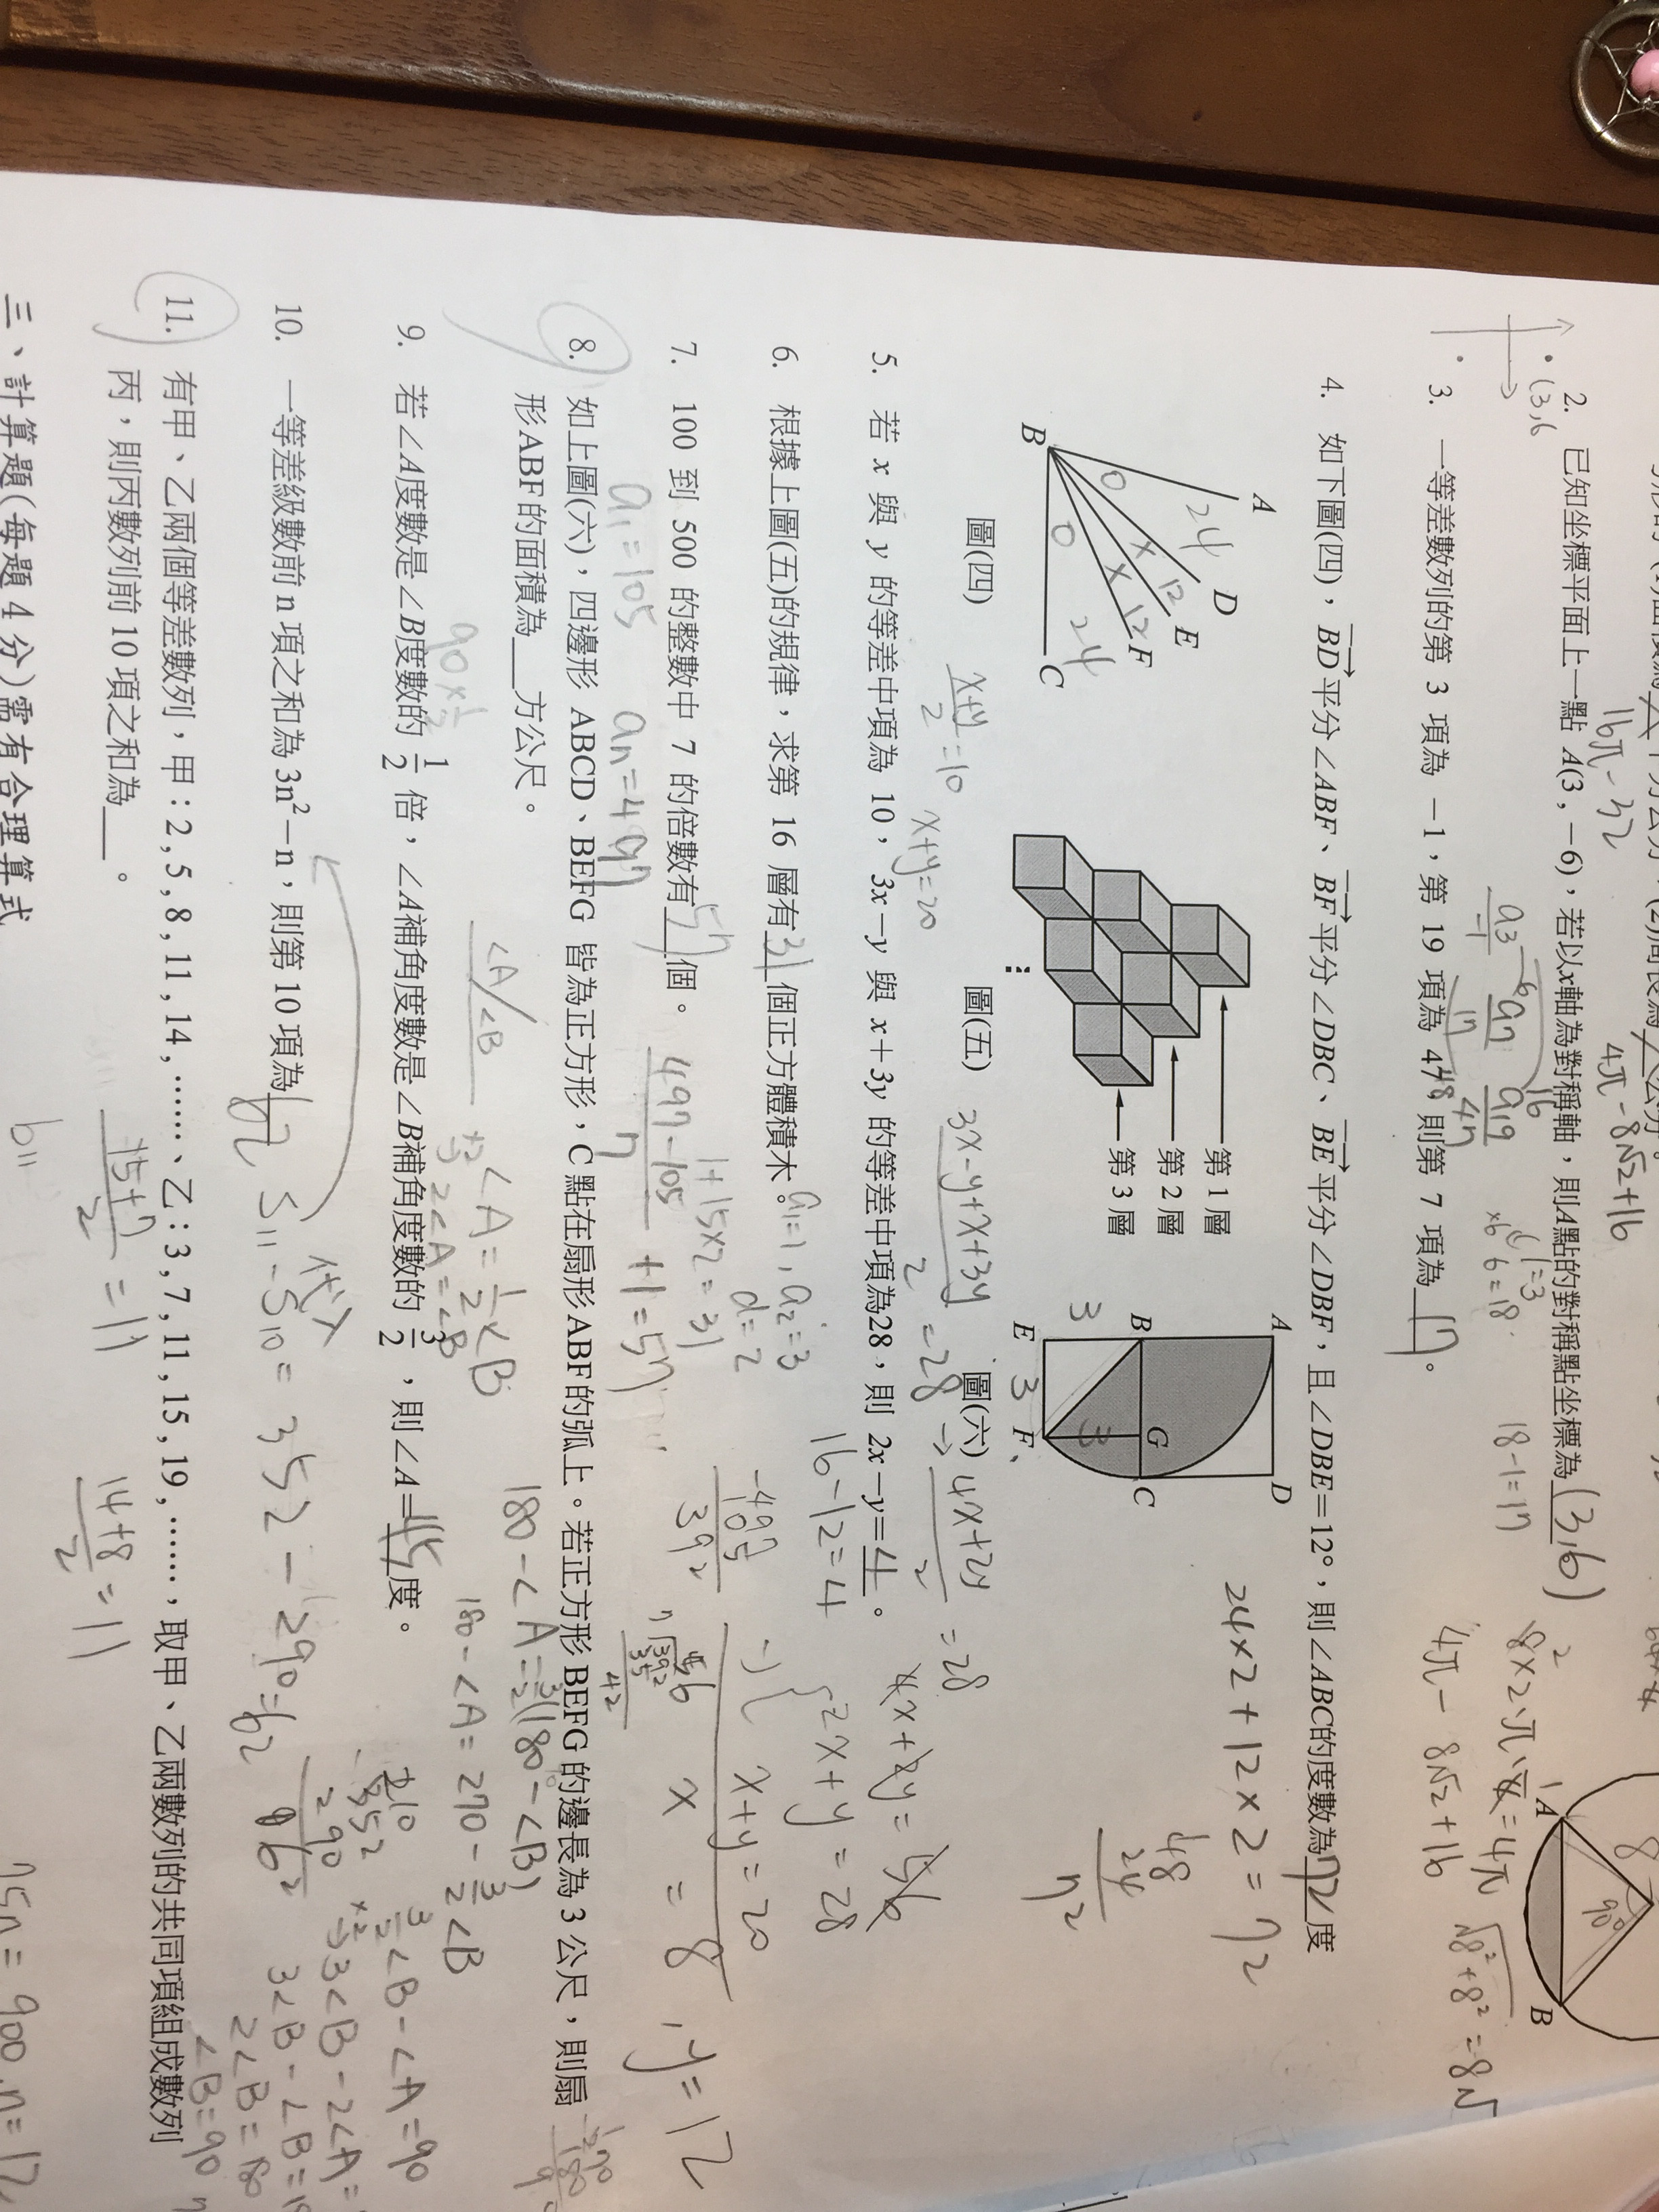 16π-32
4π-8√2+16
2. 已知坐標平面上一點 A(3,-6),若以x軸為對稱軸,則A點的對稱點坐標為(3,6)
(3,6
3. 一等差數列的第 3 項為 -1,第 19 項為 47,則第 7 項為 17。
18-1=17
4π-8√2+16
4. 如下圖(四),BD平分∠ABF、BF平分∠DBC、BE平分∠DBF,且∠DBE=12°,則∠ABC的度數為72度
24×2+12×2=72
48
24
72
A
D
E
F
B
C
24
12
12
24
圖(四)
第 1 層
第 2 層
第 3 層
圖(五)
A
D
B
G
C
E
F
3
3
3
圖(六)
x+y/2=10
x+y=20
3x-y+x+3y/2=28
4x+2y/2=28
5. 若 x 與 y 的等差中項為 10,3x-y 與 x+3y 的等差中項為28,則 2x-y=4。
16-12=4
2x+y=28
x+y=20
x=8, y=12
6. 根據上圖(五)的規律,求第 16 層有31個正方體積木。
a1=1, a2=3
d=2
1+15×2=31
7. 100 到 500 的整數中 7 的倍數有57個。
a1=105 an=497
497-105/7+1=57
8. 如上圖(六),四邊形 ABCD、BEFG 皆為正方形,C 點在扇形 ABF 的弧上。若正方形 BEFG 的邊長為 3 公尺,則扇
形 ABF 的面積為___方公尺。
9. 若∠A度數是∠B度數的 1/2 倍,∠A補角度數是∠B補角度數的 3/2,則∠A=45度。
∠A=1/2×B
2∠A=∠B
180-∠A=3/2(180-∠B)
180-∠A=270-3/2∠B
3/2∠B-∠A=90
2∠B=180
∠B=90
10. 一等差級數前 n 項之和為 3n²-n,則第 10 項為62
代入
S11-S10=352-290=62
11. 有甲、乙兩個等差數列,甲:2,5,8,11,14,……、乙:3,7,11,15,19,……,取甲、乙兩數列的共同項組成數列
丙,則丙數列前 10 項之和為___。
15+7/2=11
14+8/2=11
三、計算題(每題 4 分)需有合理算式
b11